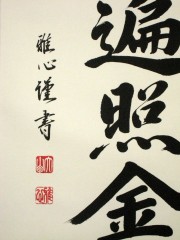 遍照金
雅心謹書